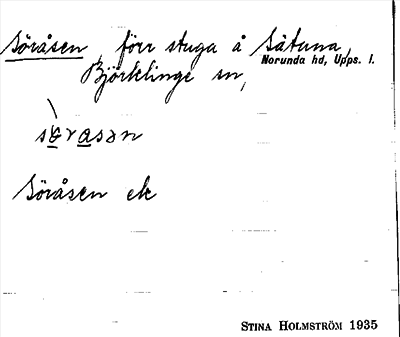 Söråsen, förr stuga å Sätuna,
Norunda hd, Upps. l.
Björklinge sn,
Söråsen ek
STINA HOLMSTRÖM 1935